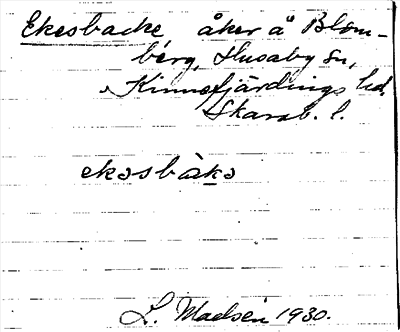 Ekesbacke, åker å Blom-
berg, Husaby sn,
Kinnefjärdings hd,
Skarab. l.
ekəsbàkə
L. Maelsén 1930.